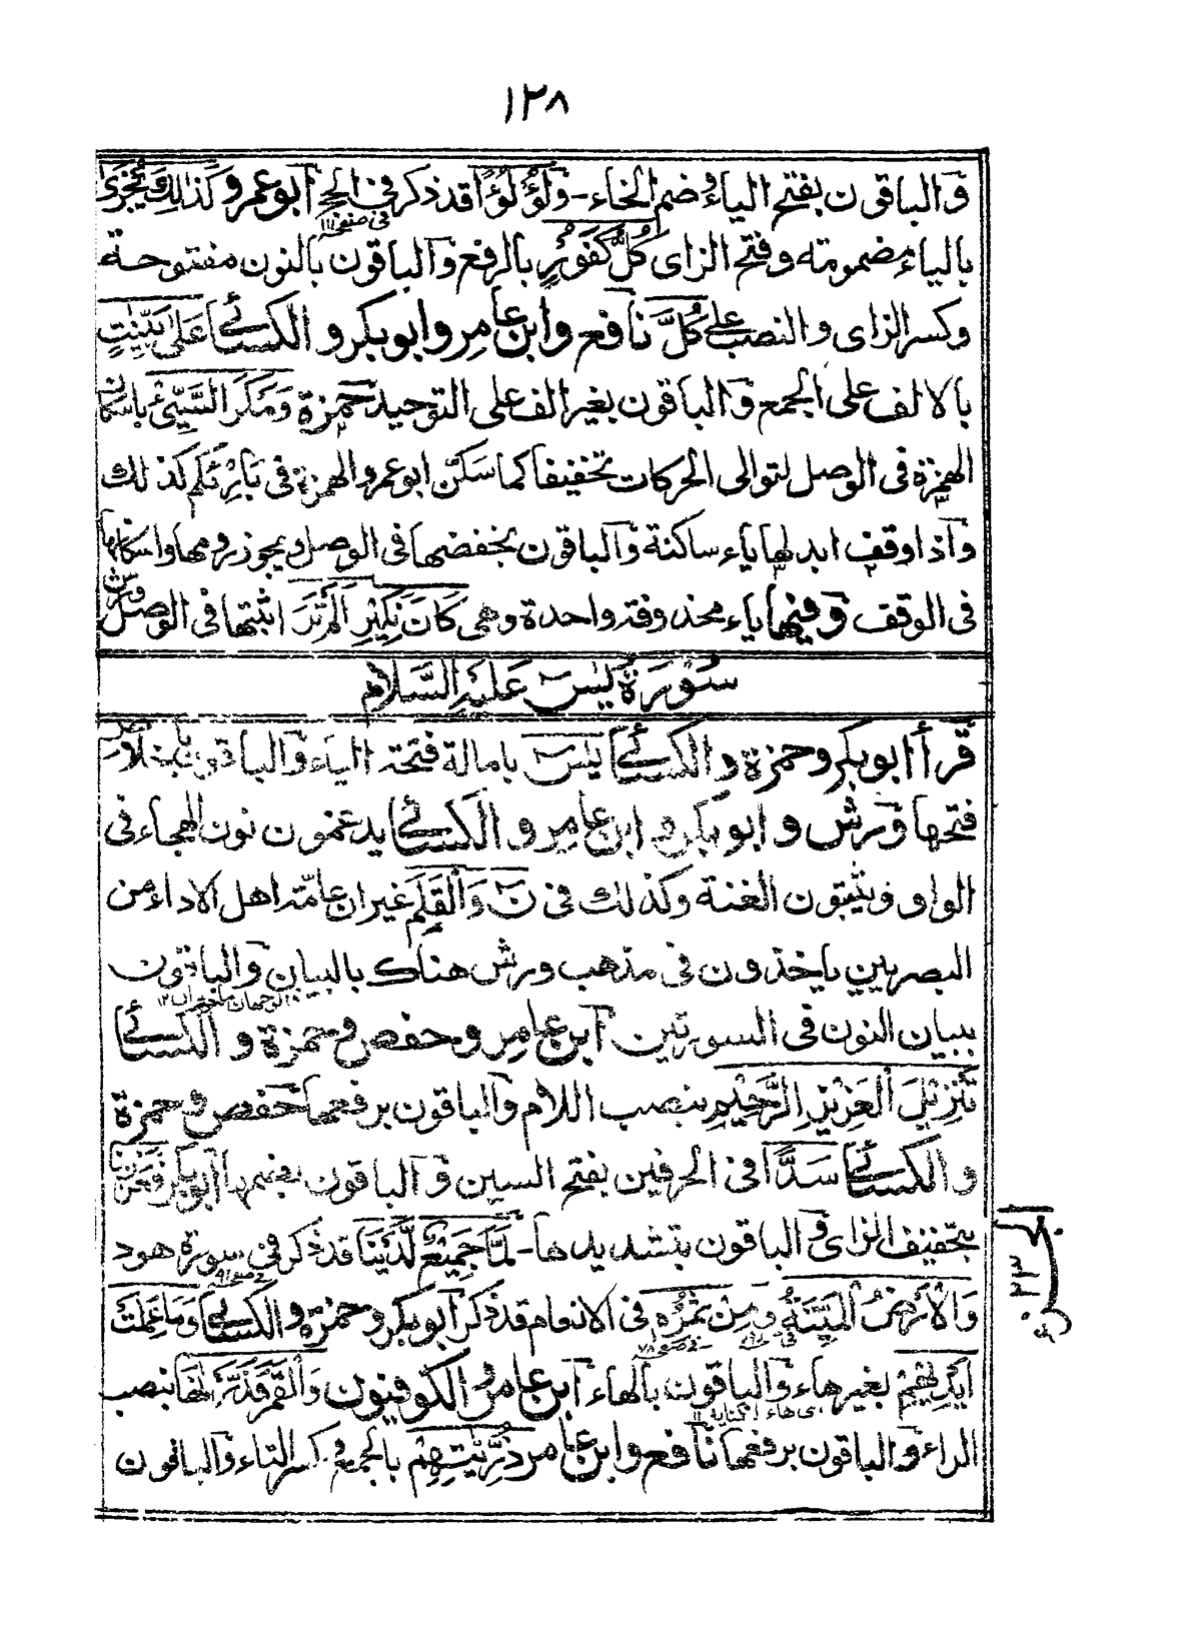 ١٢٨
والباقون بفتح الياء وضم الخاء - ولؤلؤا قد ذكر في الحج ابوعمرو كذلك يجزى
في صفحه ١١١
بالياء مضمومته وفتح الزاى كلُّ كفورٍ بالرفع والباقون بالنون مفتوحة
وكسر الزاى والنصب على كلَّ نافع وابن عامر وابوبكر والكسائى على بيّنٰتٍ
بالالف على الجمع والباقون بغير الف على التوحيد حمزة ومكر السّيّئ باسكان
الهمزة فى الوصل لتوالى الحركات تخفيفا كما سكّن ابوعمرو الهمزة فى بارئكم كذلك
واذا وقف ابدلها ياء ساكنة والباقون بخفضها فى الوصل ويجوز رومها واسكانها
فى الوقف وفيها ياء محذوفة واحدة وهى كان نكير الم تر اثبتها فى الوصل ورش
سُورَةُ يٰسٓ عَلَيْهِ السَّلام
قرأ ابوبكر وحمزة والكسائى يٰسٓ بامالة فتحة الياء والباقون باخلاص
فتحها ورش وابوبكر وابن عامر والكسائى يدغمون نون الهجاء فى
الواو ويبقون الغنة وكذلك فى نٓ والقلم غير ان عامّة اهل الاداء من
البصريين ياخذون فى مذهب ورش هناك بالبيان والباقون
ببيان النون فى السورتين ابن عامر وحفص وحمزة والكسائى
تنزيلَ العزيز الرّحيم بنصب اللام والباقون برفعها حفص وحمزة
والكسائى سَدًّا فى الحرفين بفتح السين والباقون بضمها ابوبكر فعززنا
بتخفيف الزاى والباقون بتشديدها - لمّا جميعٌ لّدينا قد ذكر فى سورة هود
والارضُ الميتة ومن ثمره فى الانعام قد ذكر ابوبكر وحمزة والكسائى وما عملت
ايديهم بغير هاء والباقون بالهاء ابن عامر والكوفيون والقمر قدّرنٰه بنصب
الراء والباقون برفعها نافع وابن عامر ذرّيّٰتهم بالجمع وكسر التاء والباقون